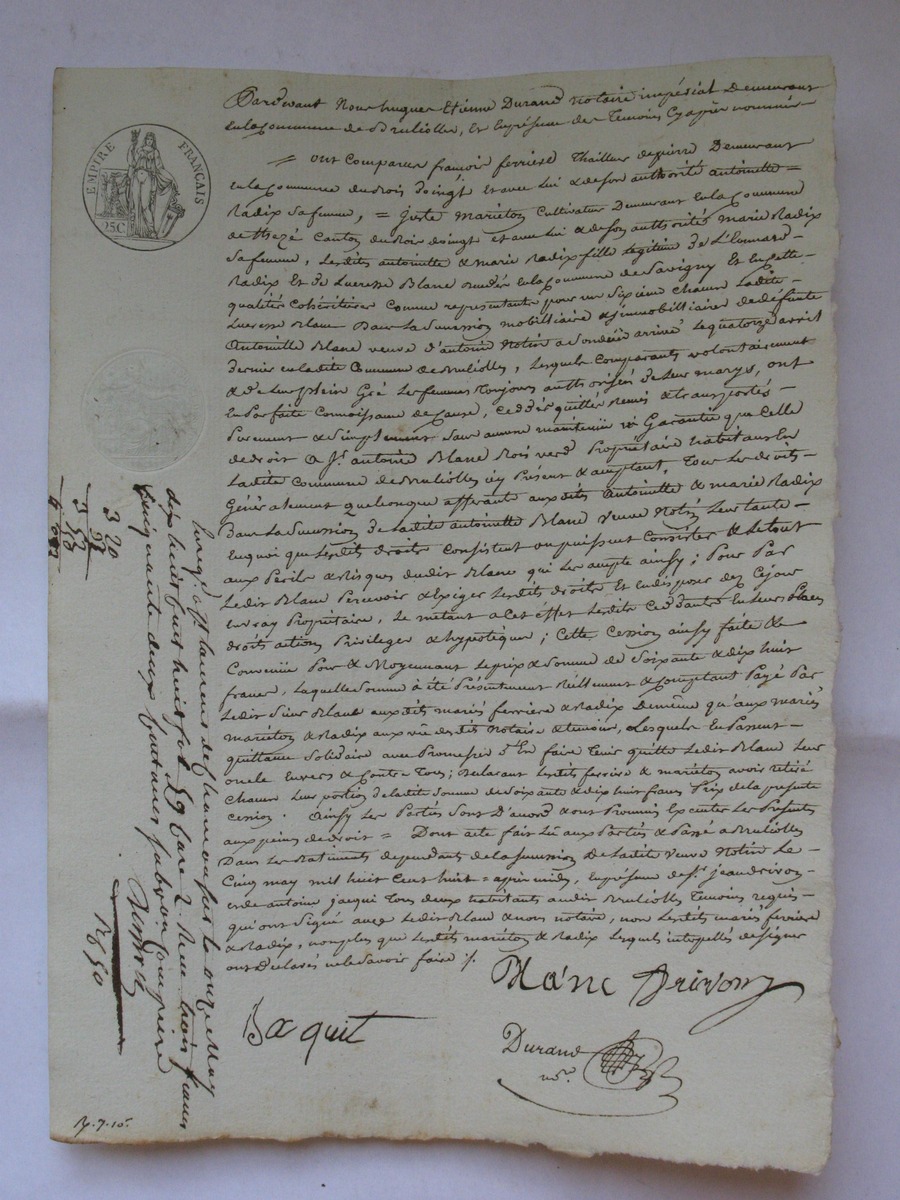 EMPIRE FRANÇAIS
25C
Pardevant Nous hugues Etienne Durand Notaire impérial Demeurant
En la Commune de Brulliolles, et En présence des Temoins Cy après nommés
= ont Comparus françois ferriere Thailleur de pierre Demeurant
En la Commune du bois Doingt et avec lui & de son authorité antoinette
Radix sa femme, = Juste mariéton Cultivateur Demeurant En la Commune
de thezé Canton du bois doingt et avec lui & de son authorités marie Radix
sa femme, lesdits antoinette & marie Radix fille legitime de L'Eonnard
Radix Et de Lucresse Blanc En la Commune de Savigny Et En cette
qualités Cohéritiere Comme représentante pour un Sixiéme Chacune Ladite
Lucresse Blanc Dans La Succession mobilliaire & jmmobilliaire de défunte
Antoinette Blanc veuve d'antoine Notin a Son décès arrivé Le quatorze avril
dernier En ladite Commune de Brulliolles, Lesquels Comparants volontairement
& de Leur plein Gré Les femmes Toujours authorisées de Leur marys, ont
En Parfaite Connoissance de Cause, Ceddés quittés Remis & transportés
Purement & Simplement Sans aucune maintenüe ni Garantie que Celle
de droit a Sr. antoine Blanc Propriétaire habitant En
Ladite Commune de Brulliolles icy Présent & acceptant, Tous Les droits
Généralement quelconque afferants auxdits Antoinette & marie Radix
Dans La Succession de Ladite antoinette Blanc Veuve Notin Leur tante
En quoi que Lesdits droits Consistent ou puissent Consister & Le tout
aux Périls & Risques dudit Blanc qui Les accepte ainsy; Pour Par
Ledit Blanc Percevoir & Exiger Lesdits droits Et En disposer des Cejour
En vray Propriétaire, Le mettant a Cet éffet Lesdits Ceddants En Leurs places
droits actions Privileges & hypoteques; Cette Cession ainsy faite &
Convenüe Pour & Moyennant Le prix & Somme de Soixante & dix huit
francs, Laquelle Somme à été Présentement Réellement & Comptant Payé Par
Ledit Sieur Blanc auxdits mariés ferriere & Radix De même qu'aux mariés
mariéton & Radix aux vüe desdits Notaire & temoins, Lesquels En Passent
quittance Solidaire avec Promesse d'En faire Tenir quitte Ledit Blanc Leur
oncle Envers & Contre Tous; Declarant Lesdits ferriere & mariéton avoir retiré
Chacun Leur portion de Ladite Somme de Soixante & dix huit francs Prix de la presente
Cession. Ainsy Les Parties Sont D'accord & ont Promis Executer Les Présentes
aux peines de droit = Dont acte fait Lû aux Parties & Passé a Brulliolles
Dans Les Batiments dependants de la Succession de Ladite veuve Notin Le
Cinq may mil huit Cent huit = après midy, En présence de Sr. jean Drivon
& de antoine jacquit Tous deux habitants audit Brulliolles Temoins requis
qui ont Signé avec Ledit Blanc & nous notaire, non Lesdits mariés ferriere
& Radix, non plus que Lesdits mariéton & Radix Lesquels interpellés de signer
ont Déclarés ne le Savoir faire ./.
Blanc Drivon
Jacquit
Durand
nore.
Enregt. à St. Laurent de Chamousset le onze May
dix huit Cent huit fol. 59 Case 2 Reçu trois francs
Cinquante deux Centimes Subvon. Comprise
3 20